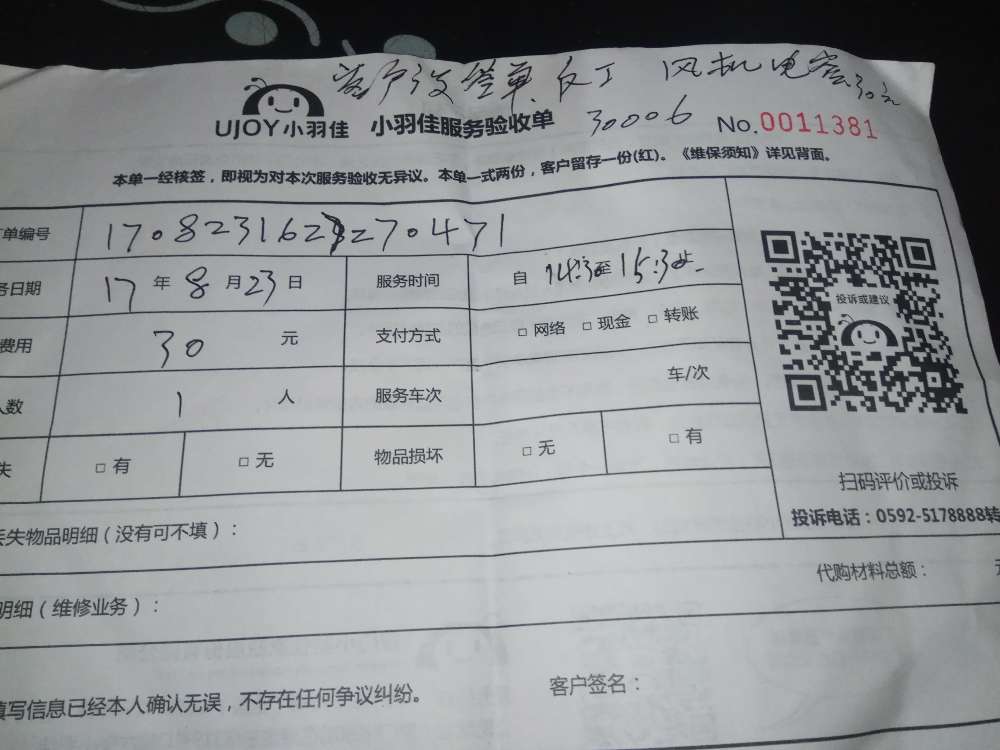 客户没签单 反工 风机电容30元
UJOY小羽佳 小羽佳服务验收单 30006 No.0011381
本单一经核签，即视为对本次服务验收无异议。本单一式两份，客户留存一份(红)。《维保须知》详见背面。
单编号 170823162 270471
日期 17 年 8 月 23 日 服务时间 自 14:3 至 15:3 止
费用 30 元 支付方式 □ 网络 □ 现金 □ 转账
人数 1 人 服务车次 车/次
失 □ 有 □ 无 物品损坏 □ 无 □ 有
投诉或建议
扫码评价或投诉
投诉电话：0592-5178888转
丢失物品明细（没有可不填）：
代购材料总额：
明细（维修业务）：
填写信息已经本人确认无误，不存在任何争议纠纷。
客户签名：